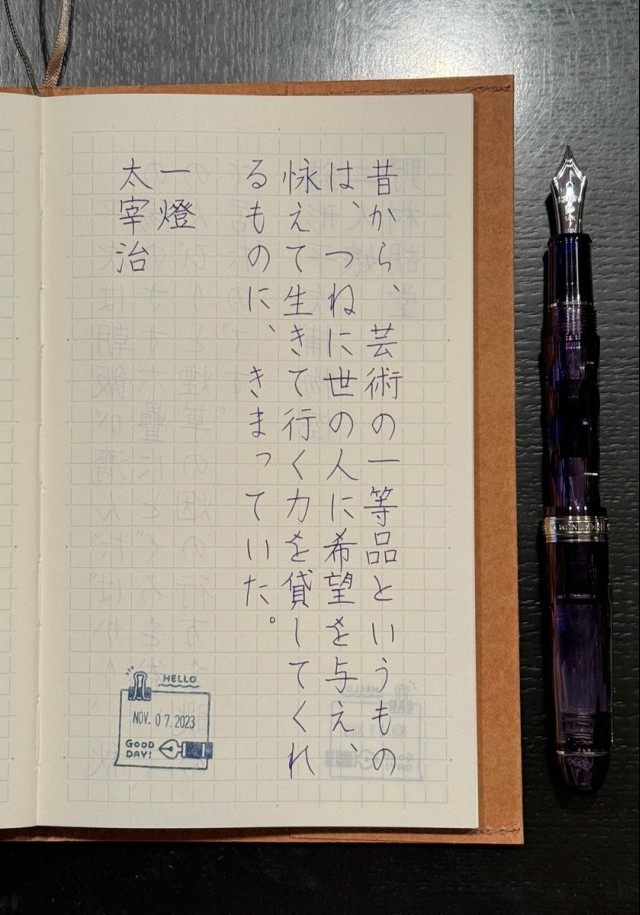 昔から、芸術の一等品というもの
は、つねに世の人に希望を与え、
怺えて生きて行く力を貸してくれ
るものに、きまっていた。
一燈
太宰治
HELLO
NOV. 07.2023
GOOD
DAY!